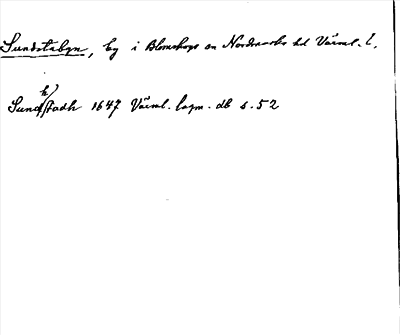 Sundstabyn, by i Blomskogs sn Nordmarks hd Värml. l.
k)
Sund/stadh 1647 Värml. lagm. db s. 52